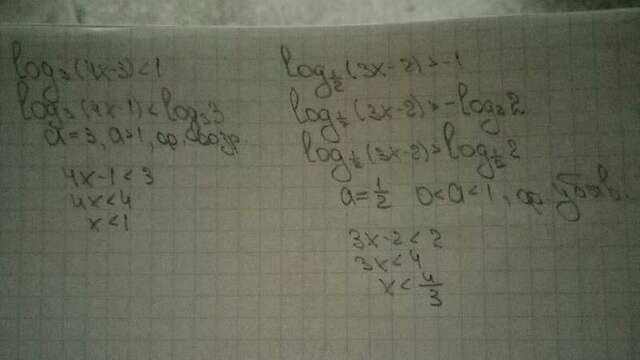 log₃(4x-3)<1
log₃(4x-1)<log₃3
a=3, a>1, ф. возр.
4x-1<3
4x<4
x<1
log_{1/2}(3x-2)>-1
log_{1/2}(3x-2)>-log₂2
log_{1/2}(3x-2)>log_{1/2}2
a=1/2 0<a<1, ф. убыв.
3x-2<2
3x<4
x<4/3